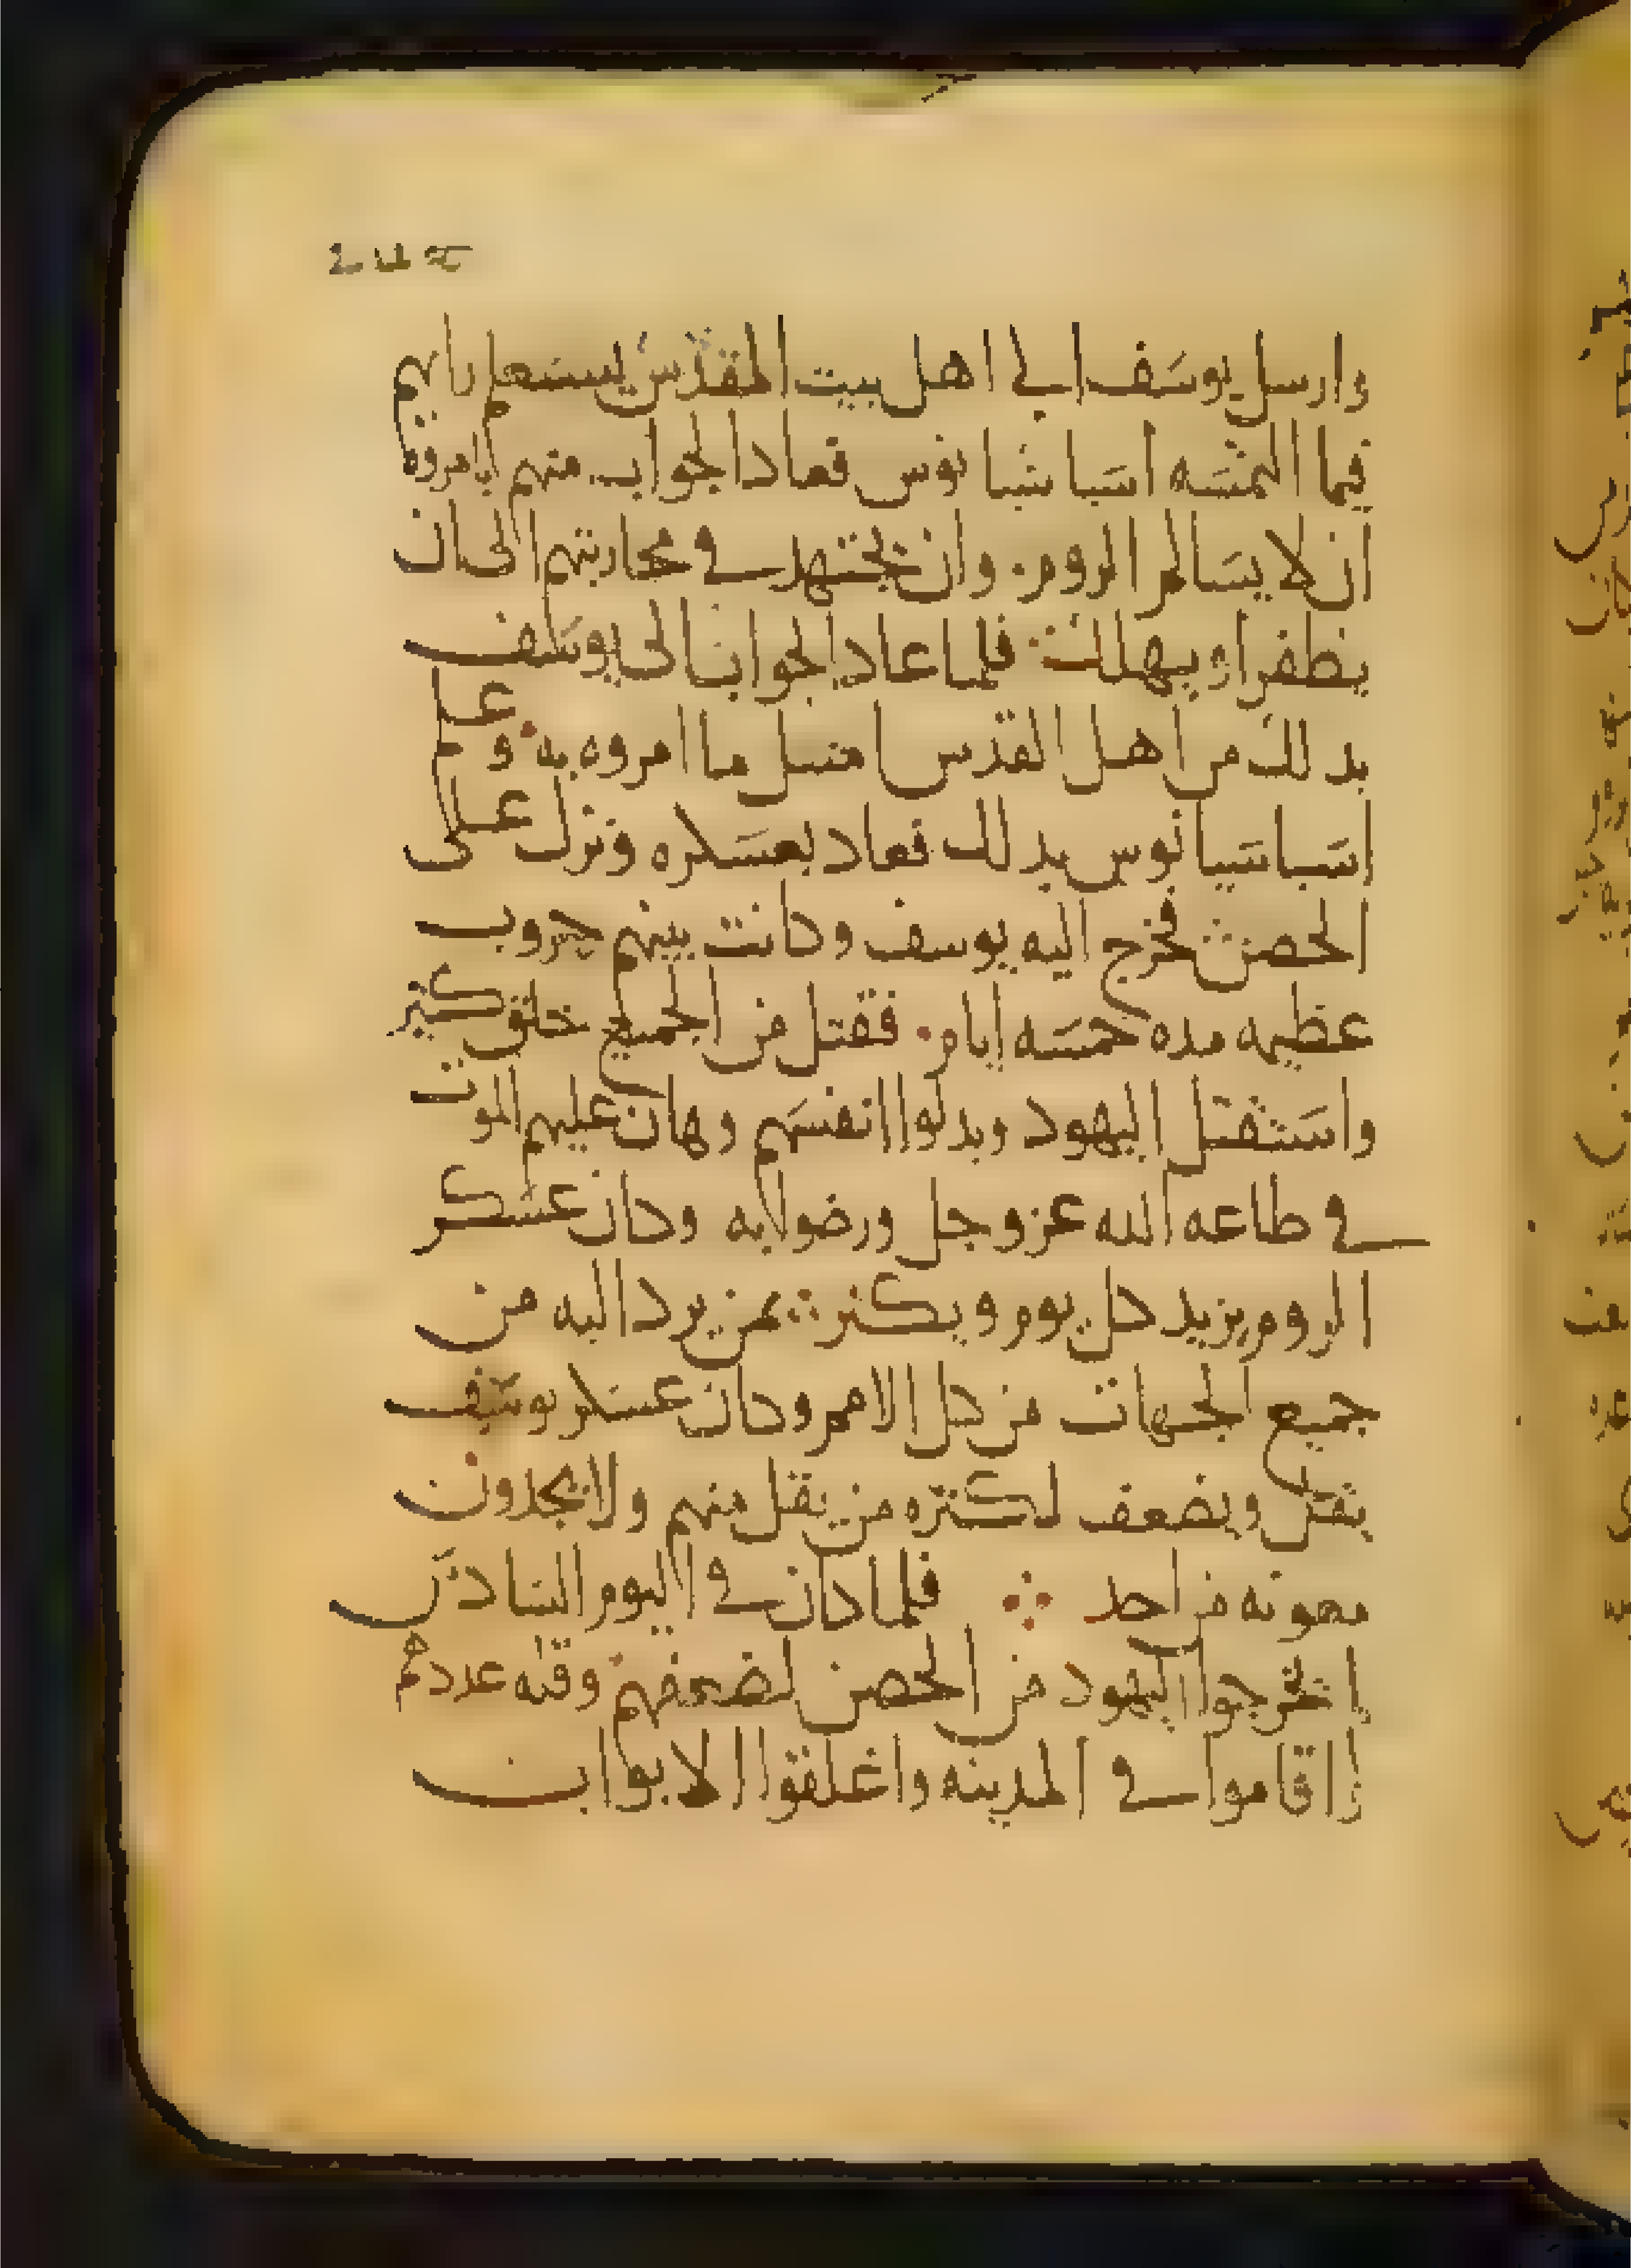 وارسل يوسف الى اهل بيت المقدس يستعلم رايهم
فيما التمسه اسباشبانوس فعاد الجواب منهم يامروه
ان لا يسالم الروم وان يجتهد في محاربتهم الى ان
يظفر او يهلك فلما عاد الجواب الى يوسف
بدلك من اهل القدس امتثل ما امروه به وعلم
اسباسيانوس بدلك فعاد بعسكره ونزل على
الحصن فخرج اليه يوسف وكانت بينهم حروب
عظيمه مده خمسه ايام فقتل من الجميع خلق كثير
واستقتل اليهود وبدلوا انفسهم وهان عليهم الموت
في طاعه الله عز وجل ورضوا به وكان عسكر
الروم يزيد كل يوم ويكثر بمن يرد اليه من
جميع الجهات من كل الامم وكان عسكر يوسف
يقل ويضعف لكثره من يقتل منهم ولا يجدون
معونه من احد فلما كان في اليوم السادس
لم يخرجوا اليهود من الحصن لضعفهم وقله عددهم
واقاموا في المدينه واغلقوا الابواب